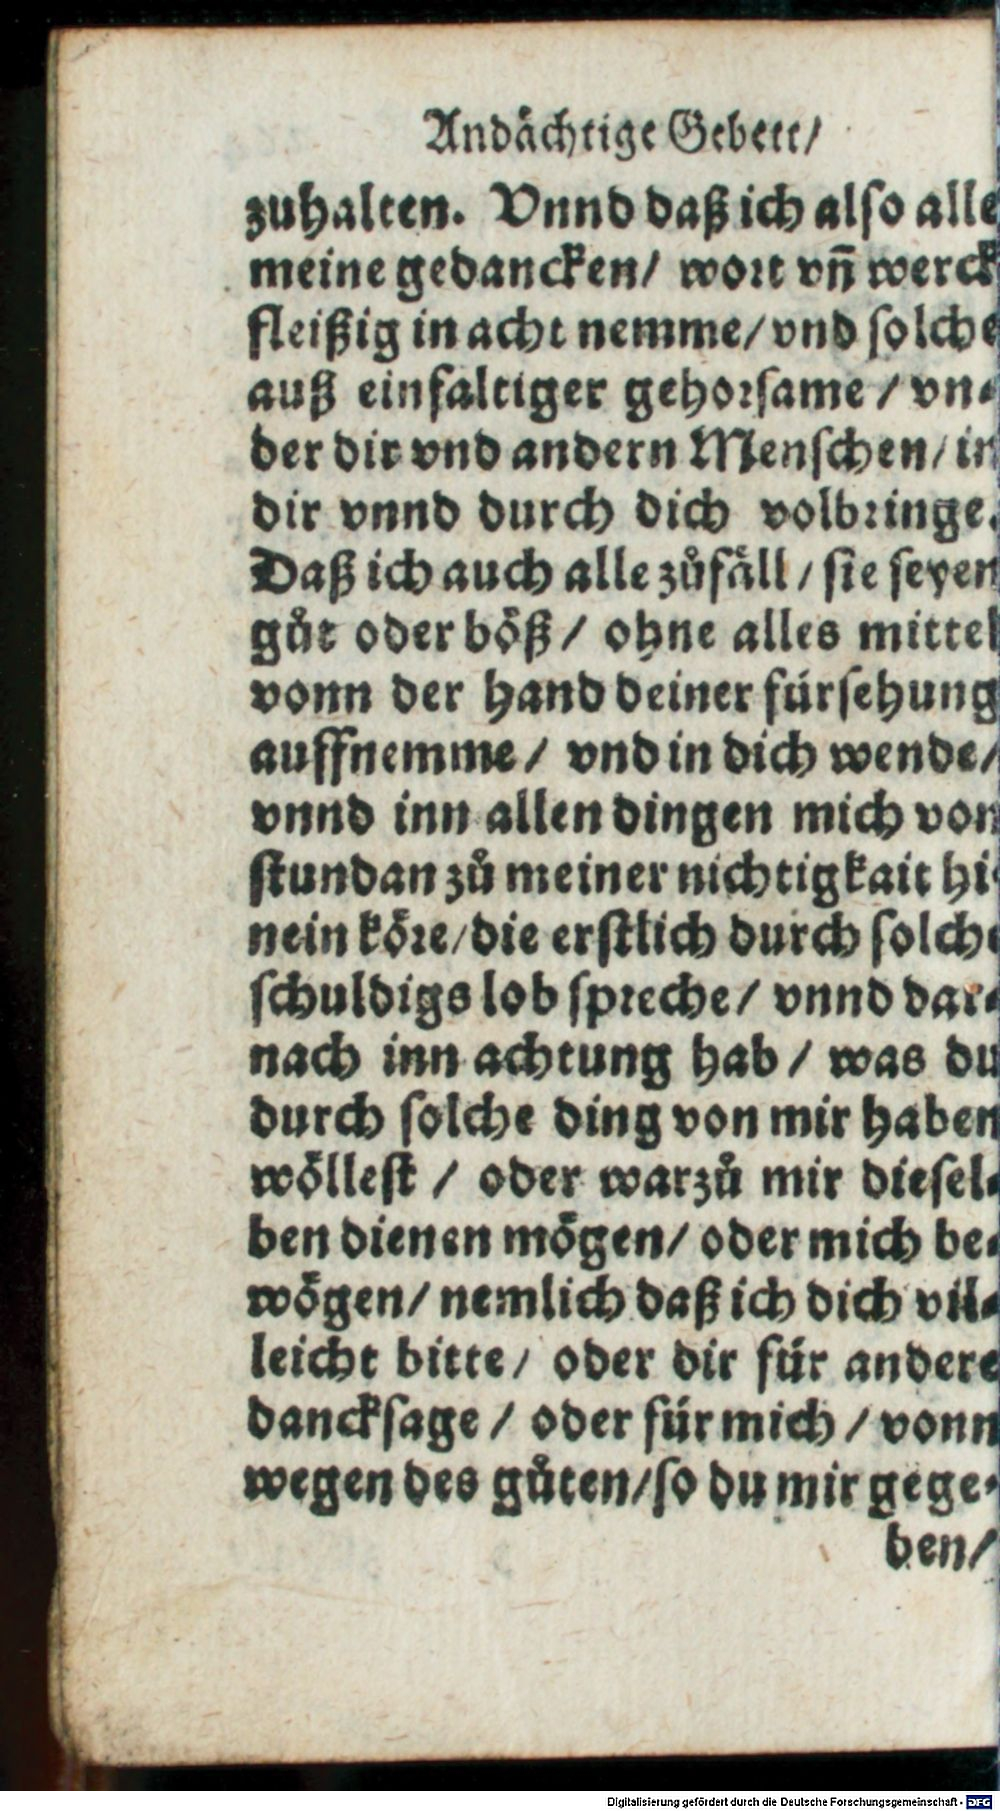 Andächtige Gebett/
zuhalten. Vnnd daß ich also alle
meine gedancken/ wort vñ werck
fleißig in acht nemme/ vnd solche
auß einfaltiger gehorsame / vn⸗
der dir vnd andern Menschen/ in
dir vnnd durch dich volbringe.
Daß ich auch alle zůfäll / sie seyen
gůt oder böß / ohne alles mittel
vonn der hand deiner fürsehung
auffnemme / vnd in dich wende /
vnnd inn allen dingen mich von
stundan zů meiner nichtigkait hi⸗
nein köre/ die erstlich durch solche
schuldigs lob spreche / vnnd dar⸗
nach inn achtung hab / was du
durch solche ding von mir haben
wöllest / oder warzů mir diesel⸗
ben dienen mögen/ oder mich be⸗
wögen/ nemlich daß ich dich vil⸗
leicht bitte/ oder dir für andere
dancksage / oder für mich / vonn
wegen des gůten/ so du mir gege⸗
ben/
Digitalisierung gefördert durch die Deutsche Forschungsgemeinschaft - DFG